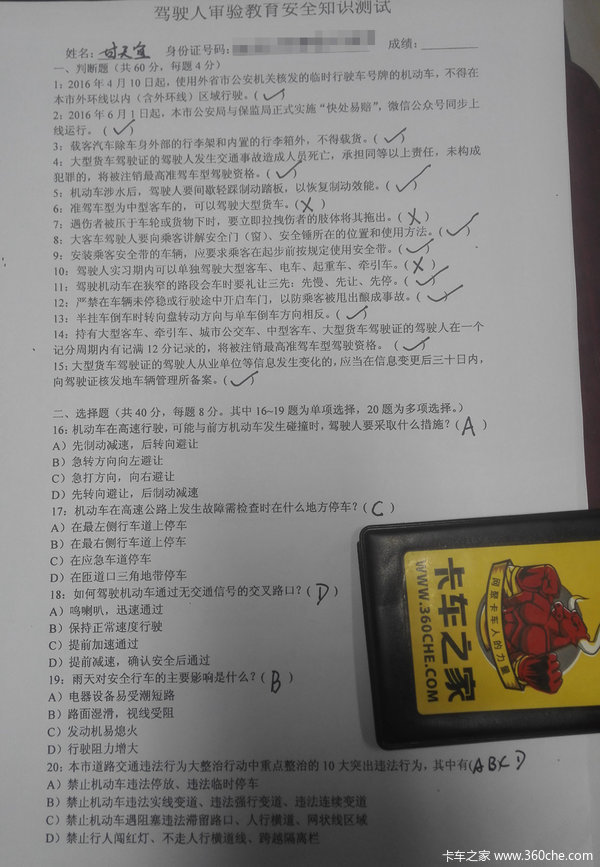 驾驶人审验教育安全知识测试
姓名：甘天宜 身份证号码： 成绩：
一、判断题（共 60 分，每题 4 分）
1：2016 年 4 月 10 日起，使用外省市公安机关核发的临时行驶车号牌的机动车，不得在
本市外环线以内（含外环线）区域行驶。（✓）
2：2016 年 6 月 1 日起，本市公安局与保监局正式实施“快处易赔”，微信公众号同步上
线运行。（✓）
3：载客汽车除车身外部的行李架和内置的行李箱外，不得载货。（✓）
4：大型货车驾驶证的驾驶人发生交通事故造成人员死亡，承担同等以上责任，未构成
犯罪的，将被注销最高准驾车型驾驶资格。（✓）
5：机动车涉水后，驾驶人要间歇轻踩制动踏板，以恢复制动效能。（✓）
6：准驾车型为中型客车的，可以驾驶大型货车。（X）
7：遇伤者被压于车轮或货物下时，要立即拉拽伤者的肢体将其拖出。（X）
8：大客车驾驶人要向乘客讲解安全门（窗）、安全锤所在的位置和使用方法。（✓）
9：安装乘客安全带的车辆，应要求乘客在起步前按规定使用安全带。（✓）
10：驾驶人实习期内可以单独驾驶大型客车、电车、起重车、牵引车。（X）
11：驾驶机动车在狭窄的路段会车时要礼让三先：先慢、先让、先停。（✓）
12：严禁在车辆未停稳或行驶途中开启车门，以防乘客被甩出酿成事故。（✓）
13：半挂车倒车时转向盘转动方向与单车倒车方向相反。（✓）
14：持有大型客车、牵引车、城市公交车、中型客车、大型货车驾驶证的驾驶人在一个
记分周期内有记满 12 分记录的，将被注销最高准驾车型驾驶资格。（✓）
15：大型货车驾驶证的驾驶人从业单位等信息发生变化的，应当在信息变更后三十日内，
向驾驶证核发地车辆管理所备案。（✓）
二、选择题（共 40 分，每题 8 分。其中 16~19 题为单项选择，20 题为多项选择。）
16：机动车在高速行驶，可能与前方机动车发生碰撞时，驾驶人要采取什么措施？（A）
A）先制动减速，后转向避让
B）急转方向向左避让
C）急打方向，向右避让
D）先转向避让，后制动减速
17：机动车在高速公路上发生故障需检查时在什么地方停车？（C）
A）在最左侧行车道上停车
B）在最右侧行车道上停车
C）在应急车道停车
D）在匝道口三角地带停车
18：如何驾驶机动车通过无交通信号的交叉路口？（D）
A）鸣喇叭，迅速通过
B）保持正常速度行驶
C）提前加速通过
D）提前减速，确认安全后通过
19：雨天对安全行车的主要影响是什么？（B）
A）电器设备易受潮短路
B）路面湿滑，视线受阻
C）发动机易熄火
D）行驶阻力增大
20：本市道路交通违法行为大整治行动中重点整治的 10 大突出违法行为，其中有(ABCD
A）禁止机动车违法停放、违法临时停车
B）禁止机动车违法实线变道、违法强行变道、违法连续变道
C）禁止机动车遇阻塞违法滞留路口、人行横道、网状线区域
D）禁止行人闯红灯、不走人行横道线、跨越隔离栏
卡车之家
WWW.360CHE.COM
网聚卡车人的力量
卡车之家 www.360che.com